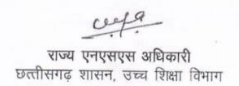 राज्य एनएसएस अधिकारी
छत्तीसगढ़ शासन, उच्च शिक्षा विभाग